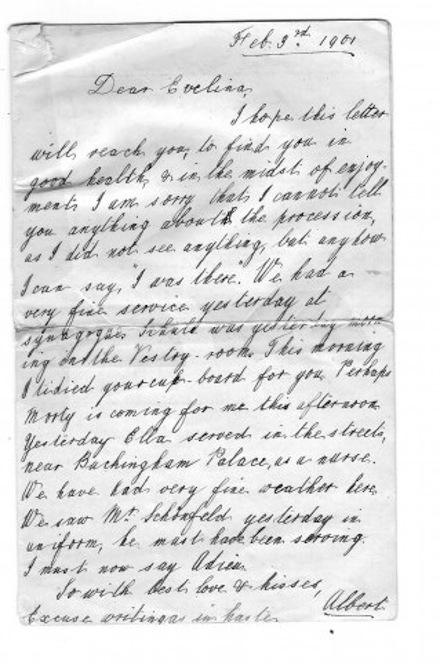 Feb. 3rd. 1901
Dear Evelina,
I hope this letter
will reach you, to find you in
good health, & in the midst of enjoy-
ment. I am sorry that I cannot tell
you anything about the procession,
as I did not see anything, but anyhow
I can say, "I was there". We had a
very fine service yesterday at
synagogue. was yesterday morn
ing in the Vestry-room. This morning
I tidied your cup-board for you. Perhaps
Morty is coming for me this afternoon.
Yesterday Ella served in the streets,
near Buckingham Palace, as a nurse.
We have had very fine weather here.
We saw Mr. Schönfeld yesterday in
uniform, he must have been serving.
I must now say Adieu.
So with best love & kisses,
Albert
Excuse writing as in haste